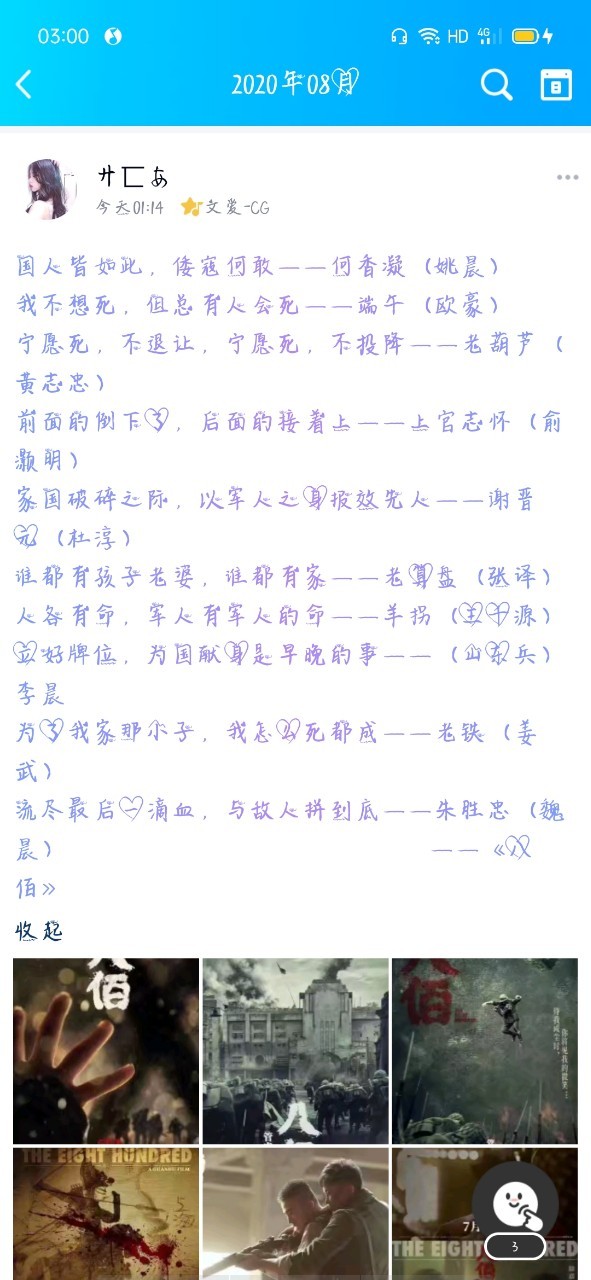 03:00
HD 4G
2020年08月
サ匚あ
今天01:14 文爱-CG
国人皆如此，倭寇何敢——何香凝（姚晨）
我不想死，但总有人会死——端午（欧豪）
宁愿死，不退让，宁愿死，不投降——老葫芦（
黄志忠）
前面的倒下了，后面的接着上——上官志怀（俞
灏明）
家国破碎之际，以军人之身报效先人——谢晋
元（杜淳）
谁都有孩子老婆，谁都有家——老算盘（张译）
人各有命，军人有军人的命——羊拐（王千源）
立好牌位，为国献身是早晚的事——（山东兵）
李晨
为了我家那小子，我怎么死都成——老铁（姜
武）
流尽最后一滴血，与敌人拼到底——朱胜忠（魏
晨） ——《八
佰》
收起
八佰
八
八佰
你将见我的微笑
THE EIGHT HUNDRED
7月
THE EIGHT HUNDRED
佰
3